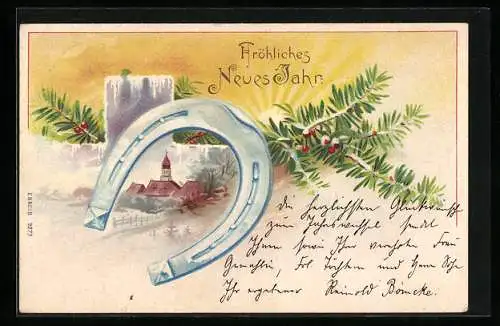 Fröhliches
Neues Jahr.
Die herzlichsten Glückwünsche
zum Jahreswechsel sendet
Ihnen sowie Ihrer verehrten Frau
Gemahlin, Frl. Töchtern und Herrn Sohn
Ihr ergebener Reinold